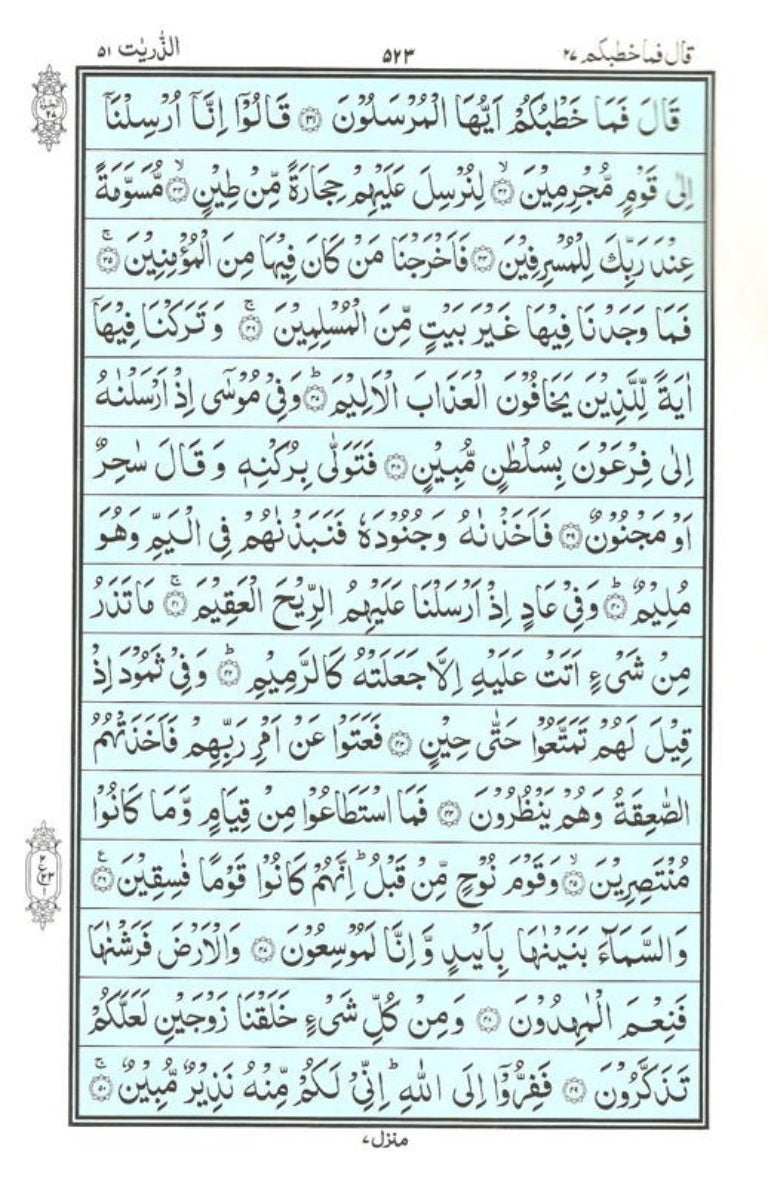 قال فما خطبكم ۲۷ ۵۲۳ الذّٰریٰت ۵۱
قَالَ فَمَا خَطْبُكُمْ اَیُّهَا الْمُرْسَلُوْنَ ۝۳۱ قَالُوْۤا اِنَّاۤ اُرْسِلْنَاۤ
اِلٰى قَوْمٍ مُّجْرِمِیْنَ ۝ۙ۳۲ لِنُرْسِلَ عَلَیْهِمْ حِجَارَةً مِّنْ طِیْنٍ ۝ۙ۳۳ مُّسَوَّمَةً
عِنْدَ رَبِّكَ لِلْمُسْرِفِیْنَ ۝۳۴ فَاَخْرَجْنَا مَنْ كَانَ فِیْهَا مِنَ الْمُؤْمِنِیْنَ ۝ۚ۳۵
فَمَا وَجَدْنَا فِیْهَا غَیْرَ بَیْتٍ مِّنَ الْمُسْلِمِیْنَ ۝ۚ۳۶ وَ تَرَكْنَا فِیْهَاۤ
اٰیَةً لِّلَّذِیْنَ یَخَافُوْنَ الْعَذَابَ الْاَلِیْمَ ۝ؕ۳۷ وَفِیْ مُوْسٰۤى اِذْ اَرْسَلْنٰهُ
اِلٰى فِرْعَوْنَ بِسُلْطٰنٍ مُّبِیْنٍ ۝۳۸ فَتَوَلّٰى بِرُكْنِهٖ وَ قَالَ سٰحِرٌ
اَوْ مَجْنُوْنٌ ۝۳۹ فَاَخَذْنٰهُ وَجُنُوْدَهٗ فَنَبَذْنٰهُمْ فِی الْیَمِّ وَهُوَ
مُلِیْمٌ ۝ؕ۴۰ وَفِیْ عَادٍ اِذْ اَرْسَلْنَا عَلَیْهِمُ الرِّیْحَ الْعَقِیْمَ ۝ۚ۴۱ مَا تَذَرُ
مِنْ شَیْءٍ اَتَتْ عَلَیْهِ اِلَّا جَعَلَتْهُ كَالرَّمِیْمِ ۝ؕ۴۲ وَفِیْ ثَمُوْدَ اِذْ
قِیْلَ لَهُمْ تَمَتَّعُوْا حَتّٰى حِیْنٍ ۝۴۳ فَعَتَوْا عَنْ اَمْرِ رَبِّهِمْ فَاَخَذَتْهُمُ
الصّٰعِقَةُ وَهُمْ یَنْظُرُوْنَ ۝۴۴ فَمَا اسْتَطَاعُوْا مِنْ قِیَامٍ وَّمَا كَانُوْا
مُنْتَصِرِیْنَ ۝ۙ۴۵ وَقَوْمَ نُوْحٍ مِّنْ قَبْلُ ؕ اِنَّهُمْ كَانُوْا قَوْمًا فٰسِقِیْنَ ۝۠۴۶
وَالسَّمَآءَ بَنَیْنٰهَا بِاَیْىدٍ وَّاِنَّا لَمُوْسِعُوْنَ ۝۴۷ وَالْاَرْضَ فَرَشْنٰهَا
فَنِعْمَ الْمٰهِدُوْنَ ۝۴۸ وَمِنْ كُلِّ شَیْءٍ خَلَقْنَا زَوْجَیْنِ لَعَلَّكُمْ
تَذَكَّرُوْنَ ۝۴۹ فَفِرُّوْۤا اِلَى اللّٰهِ ؕ اِنِّیْ لَكُمْ مِّنْهُ نَذِیْرٌ مُّبِیْنٌ ۝ۚ۵۰
منزل ۷